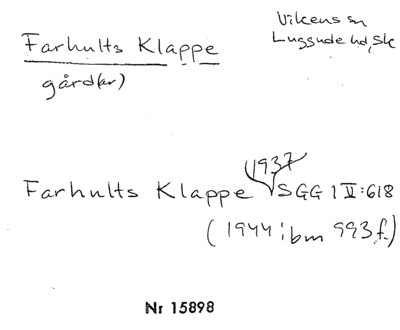 Farhults Klappe
gård(ar)
Vikens sn
Luggude hd, Sk
1937
Farhults Klappe SGG 1 V:618
(1944 ibm 993 f.)
Nr 15898